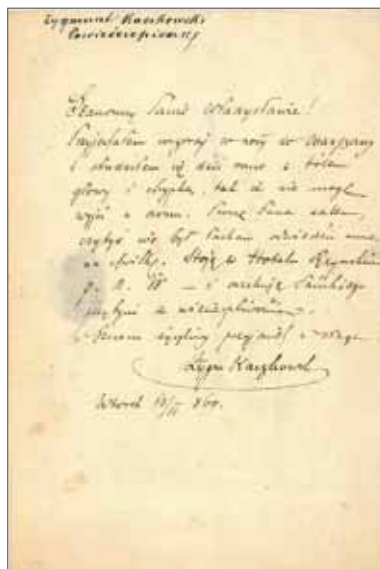 Zygmunt Kaczkowski
Powieściopisarz
Szanowny Panie Władysławie!
Przyjechałem wczoraj w nocy do Warszawy
i obudziłem się dziś rano z bólem
głowy i chrypką, tak że nie mogę
wyjść z domu. Proszę Pana zatem,
czybyś nie był łaskaw odwiedzić mnie
na chwilkę. Stoję w Hotelu Rzymskim
p. N. i oczekuję Pańskiego
z niecierpliwością.
Sercem życzliwy przyjaciel i sługa
Zygm Kaczkowski
Wtorek